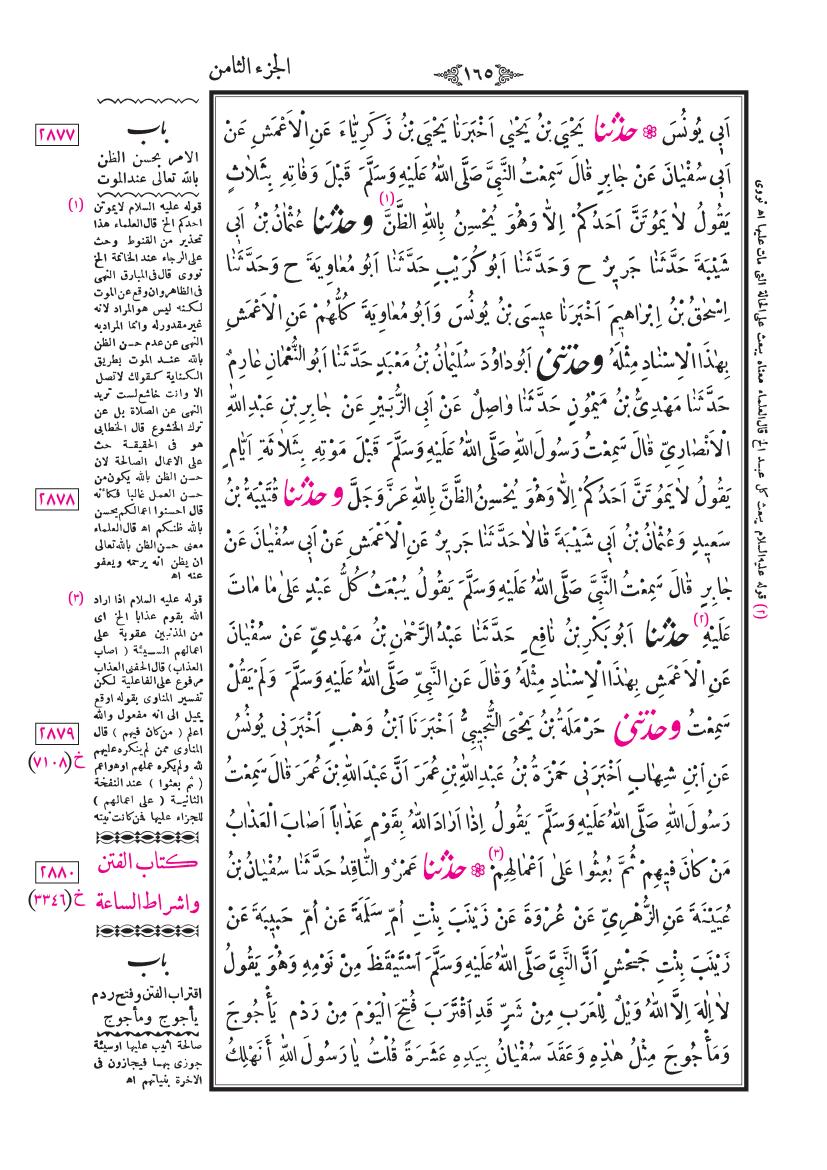 الجزء الثامن
١٦٥
اَبِى يُونُسَ ۞ حَدَّثَنَا يَحْيَى بْنُ يَحْيٰى اَخْبَرَنَا يَحْيَى بْنُ زَكَرِيَّاءَ عَنِ الْاَعْمَشِ عَنْ
اَبِى سُفْيَانَ عَنْ جَابِرٍ قَالَ سَمِعْتُ النَّبِىَّ صَلَّى اللهُ عَلَيْهِ وَسَلَّمَ قَبْلَ وَفَاتِهِ بِثَلَاثٍ
يَقُولُ لَا يَمُوتَنَّ اَحَدُكُمْ اِلَّا وَهُوَ يُحْسِنُ بِاللهِ الظَّنَّ (١) وَحَدَّثَنَا عُثْمَانُ بْنُ اَبِى
شَيْبَةَ حَدَّثَنَا جَرِيرٌ ح وَحَدَّثَنَا اَبُو كُرَيْبٍ حَدَّثَنَا اَبُو مُعَاوِيَةَ ح وَحَدَّثَنَا
اِسْحٰقُ بْنُ اِبْرَاهِيمَ اَخْبَرَنَا عِيسَى بْنُ يُونُسَ وَاَبُو مُعَاوِيَةَ كُلُّهُمْ عَنِ الْاَعْمَشِ
بِهٰذَا الْاِسْنَادِ مِثْلَهُ وَحَدَّثَنِى اَبُو دَاوُدَ سُلَيْمَانُ بْنُ مَعْبَدٍ حَدَّثَنَا اَبُو النُّعْمَانِ عَارِمٌ
حَدَّثَنَا مَهْدِىُّ بْنُ مَيْمُونٍ حَدَّثَنَا وَاصِلٌ عَنْ اَبِى الزُّبَيْرِ عَنْ جَابِرِ بْنِ عَبْدِ اللهِ
الْاَنْصَارِىِّ قَالَ سَمِعْتُ رَسُولَ اللهِ صَلَّى اللهُ عَلَيْهِ وَسَلَّمَ قَبْلَ مَوْتِهِ بِثَلَاثَةِ اَيَّامٍ
يَقُولُ لَا يَمُوتَنَّ اَحَدُكُمْ اِلَّا وَهُوَ يُحْسِنُ الظَّنَّ بِاللهِ عَزَّ وَجَلَّ وَحَدَّثَنَا قُتَيْبَةُ بْنُ
سَعِيدٍ وَعُثْمَانُ بْنُ اَبِى شَيْبَةَ قَالَا حَدَّثَنَا جَرِيرٌ عَنِ الْاَعْمَشِ عَنْ اَبِى سُفْيَانَ عَنْ
جَابِرٍ قَالَ سَمِعْتُ النَّبِىَّ صَلَّى اللهُ عَلَيْهِ وَسَلَّمَ يَقُولُ يُبْعَثُ كُلُّ عَبْدٍ عَلٰى مَا مَاتَ
عَلَيْهِ (٢) حَدَّثَنَا اَبُو بَكْرِ بْنُ نَافِعٍ حَدَّثَنَا عَبْدُ الرَّحْمٰنِ بْنُ مَهْدِىٍّ عَنْ سُفْيَانَ
عَنِ الْاَعْمَشِ بِهٰذَا الْاِسْنَادِ مِثْلَهُ وَقَالَ عَنِ النَّبِىِّ صَلَّى اللهُ عَلَيْهِ وَسَلَّمَ وَلَمْ يَقُلْ
سَمِعْتُ وَحَدَّثَنِى حَرْمَلَةُ بْنُ يَحْيَى التُّجِيبِىُّ اَخْبَرَنَا ابْنُ وَهْبٍ اَخْبَرَنِى يُونُسُ
عَنِ ابْنِ شِهَابٍ اَخْبَرَنِى حَمْزَةُ بْنُ عَبْدِ اللهِ بْنِ عُمَرَ اَنَّ عَبْدَ اللهِ بْنَ عُمَرَ قَالَ سَمِعْتُ
رَسُولَ اللهِ صَلَّى اللهُ عَلَيْهِ وَسَلَّمَ يَقُولُ اِذَا اَرَادَ اللهُ بِقَوْمٍ عَذَاباً اَصَابَ الْعَذَابُ
مَنْ كَانَ فِيهِمْ ثُمَّ بُعِثُوا عَلٰى اَعْمَالِهِمْ (٣) ۞ حَدَّثَنَا عَمْرٌو النَّاقِدُ حَدَّثَنَا سُفْيَانُ بْنُ
عُيَيْنَةَ عَنِ الزُّهْرِىِّ عَنْ عُرْوَةَ عَنْ زَيْنَبَ بِنْتِ اُمِّ سَلَمَةَ عَنْ اُمِّ حَبِيبَةَ عَنْ
زَيْنَبَ بِنْتِ جَحْشٍ اَنَّ النَّبِىَّ صَلَّى اللهُ عَلَيْهِ وَسَلَّمَ اسْتَيْقَظَ مِنْ نَوْمِهِ وَهُوَ يَقُولُ
لَا اِلٰهَ اِلَّا اللهُ وَيْلٌ لِلْعَرَبِ مِنْ شَرٍّ قَدِ اقْتَرَبَ فُتِحَ الْيَوْمَ مِنْ رَدْمِ يَأْجُوجَ
وَمَأْجُوجَ مِثْلُ هٰذِهِ وَعَقَدَ سُفْيَانُ بِيَدِهِ عَشَرَةً قُلْتُ يَا رَسُولَ اللهِ اَنَهْلِكُ
(٢) قوله عليه السلام يبعث كل عبد الخ قال العلماء معناه يبعث على الحالة التى مات عليها اه نووى
٢٨٧٧
باب
الامر بحسن الظن
بالله تعالى عند الموت
(١) قوله عليه السلام لا يموتن
احدكم الخ قال العلماء هذا
تحذير من القنوط وحث
على الرجاء عند الخاتمة الخ
نووى قال فى المبارق النهى
فى الظاهر وان وقع عن الموت
لكنه ليس هو المراد لانه
غير مقدور له وانما المراد به
النهى عن عدم حسن الظن
بالله عند الموت بطريق
الكناية كقولك لا تصل
الا وانت خاشع لست تريد
النهى عن الصلاة بل عن
ترك الخشوع قال الخطابى
هو فى الحقيقة حث
على الاعمال الصالحة لان
حسن الظن بالله يكون من
حسن العمل غالبا فكانه
قال احسنوا اعمالكم يحسن
بالله ظنكم اه قال العلماء
معنى حسن الظن بالله تعالى
ان يظن انه يرحمه ويعفو
عنه اه
٢٨٧٨
(٣) قوله عليه السلام اذا اراد
الله بقوم عذابا الخ اى
من المذنبين عقوبة على
اعمالهم السيئة ( اصاب
العذاب) قال الحفنى العذاب
مرفوع على الفاعلية لكن
تفسير المناوى بقوله اوقع
يميل الى انه مفعول والله
اعلم ( من كان فيهم ) قال
المناوى ممن لم ينكره عليهم
لله ولم يكره عملهم او هو اعم
( ثم بعثوا ) عند النفخة
الثانية ( على اعمالهم )
للجزاء عليها فمن كانت نيته
٢٨٧٩
خ (٧١٠٨)
كتاب الفتن
واشراط الساعة
٢٨٨٠
خ (٣٣٤٦)
باب
اقتراب الفتن وفتح ردم
يأجوج ومأجوج
صالحة اثيب عليها او سيئة
جوزى بها فيجازون فى
الاخرة بنياتهم اه